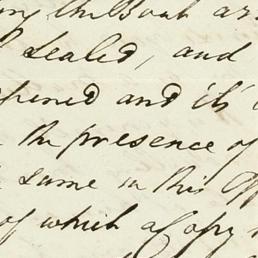 the Book
sealed, and
opened and it's
the presence of
same in this
of which a Copy